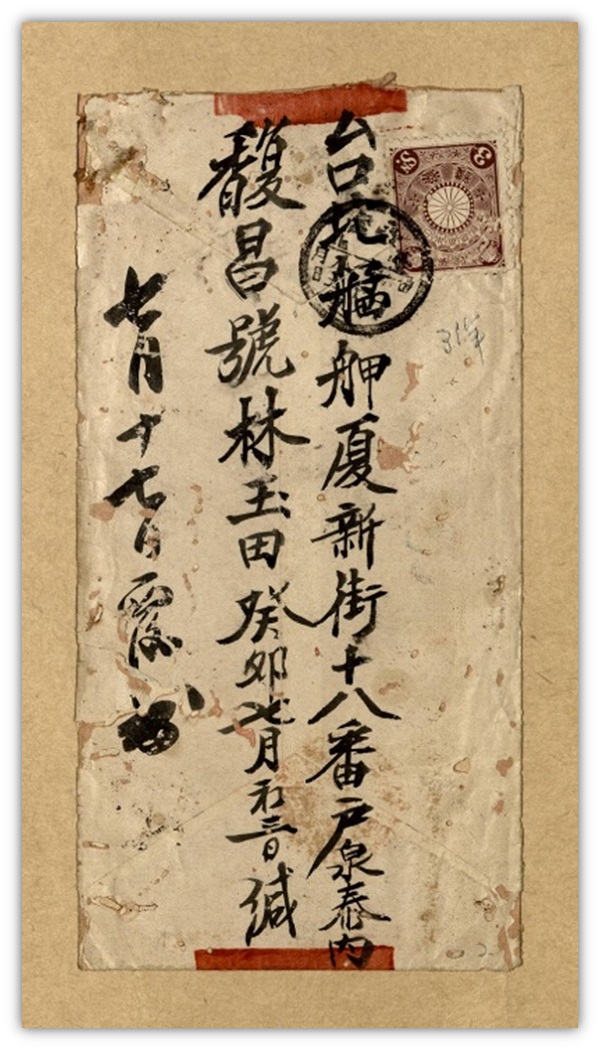 台北艋舺厦新街十八番戶泉泰內
馥昌號林玉田癸卯七月初三日緘
七月十七日覆
31年